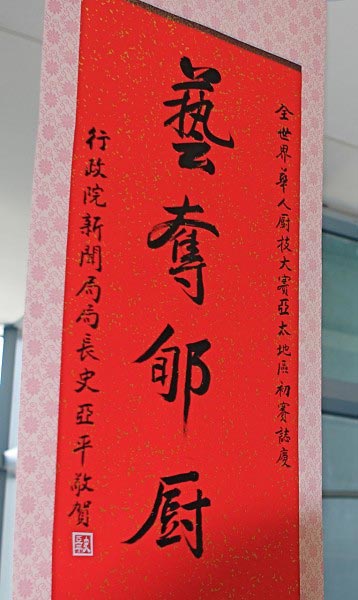 全世界華人廚技大賽亞太地區初賽誌慶
藝奪郇廚
行政院新聞局局長史亞平敬賀